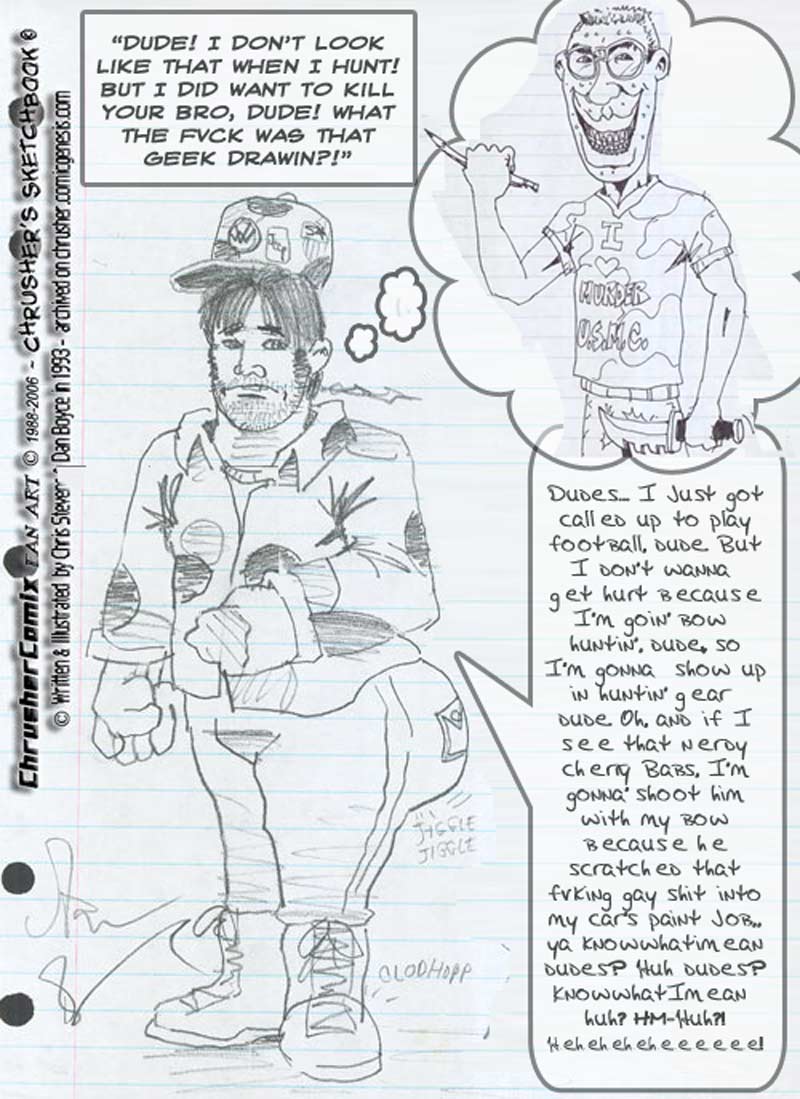 "DUDE! I DON'T LOOK
LIKE THAT WHEN I HUNT!
BUT I DID WANT TO KILL
YOUR BRO, DUDE! WHAT
THE FVCK WAS THAT
GEEK DRAWIN?!"
I
MURDER
U.S.M.C.
Dudes... I Just got
called up to play
football, dude. But
I don't wanna
get hurt because
I'm goin' bow
huntin', dude, so
I'm gonna show up
in huntin' gear
dude. Oh, and if I
see that nerdy
cherry Babs, I'm
gonna' shoot him
with my bow
because he
scratched that
fvking gay shit into
my car's paint job..
ya knowwhatimean
dudes? Huh dudes?
KnowwhatImean
huh? HM-Huh?!
Heheheheheeeeee!
JIGGLE
JIGGLE
CLODHOPP
ChrusherComix FAN ART © 1988-2006 - CHRUSHER'S SKETCHBOOK ©
© Written & Illustrated by Chris Steven Dan Boyce in 1993 - archived on chrusher.comicgenesis.com